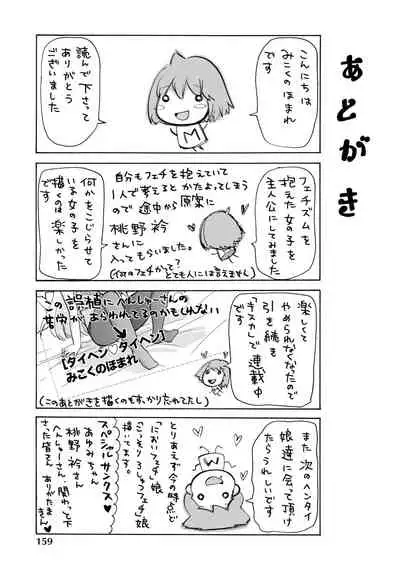 あとがき
こんにちは
みこくのほまれ
です
読んで下さって
ありがとう
ございました
フェチズムを
抱えた女の子を
主人公にしてみました
自分もフェチを抱えていて
1人で考えると かたよってしまう
ので 途中から原案に
桃野衿
さんに
入ってもらいました。
とても人には言えません)
何かをこじらせて
いる女の子を
描くのは楽しかった
です
楽しくて
やめられなくなったので
引き続き
「キスカ」で連載中
です
この誤植にへんしゅーさんの
苦労があらわれてるのかもしれない
【ダイヘン♡ダイヘン】
みこくのほまれ
(このあとがきを描くのもすっかり忘れてたし)
また 次のヘンタイ
娘達に会って頂け
たらうれしいです
とりあえず今の時点で
「においフェチ」娘
と
「こっそりろしゅつフェチ」娘
描いてます。
スペシャルサンクス♡
あゆみちゃん
桃野衿さん
へんしゅーさん・関わって下
さった皆さん ありがとー
159